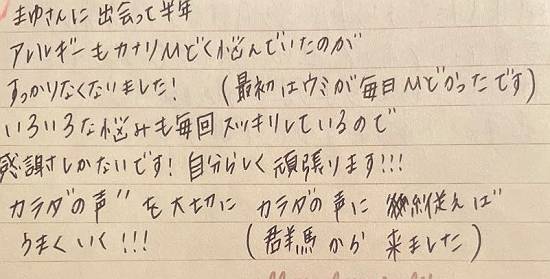 まゆさんに出会って半年
アレルギーもカナリひどく悩んでいたのが
すっかりなくなりました! (最初はウミが毎日ひどかったです)
いろいろな悩みも毎回スッキリしているので
感謝しかないです!自分らしく頑張ります!!!
カラダの声〃を大切に カラダの声に 従えば
うまくいく!!! (群馬から来ました)